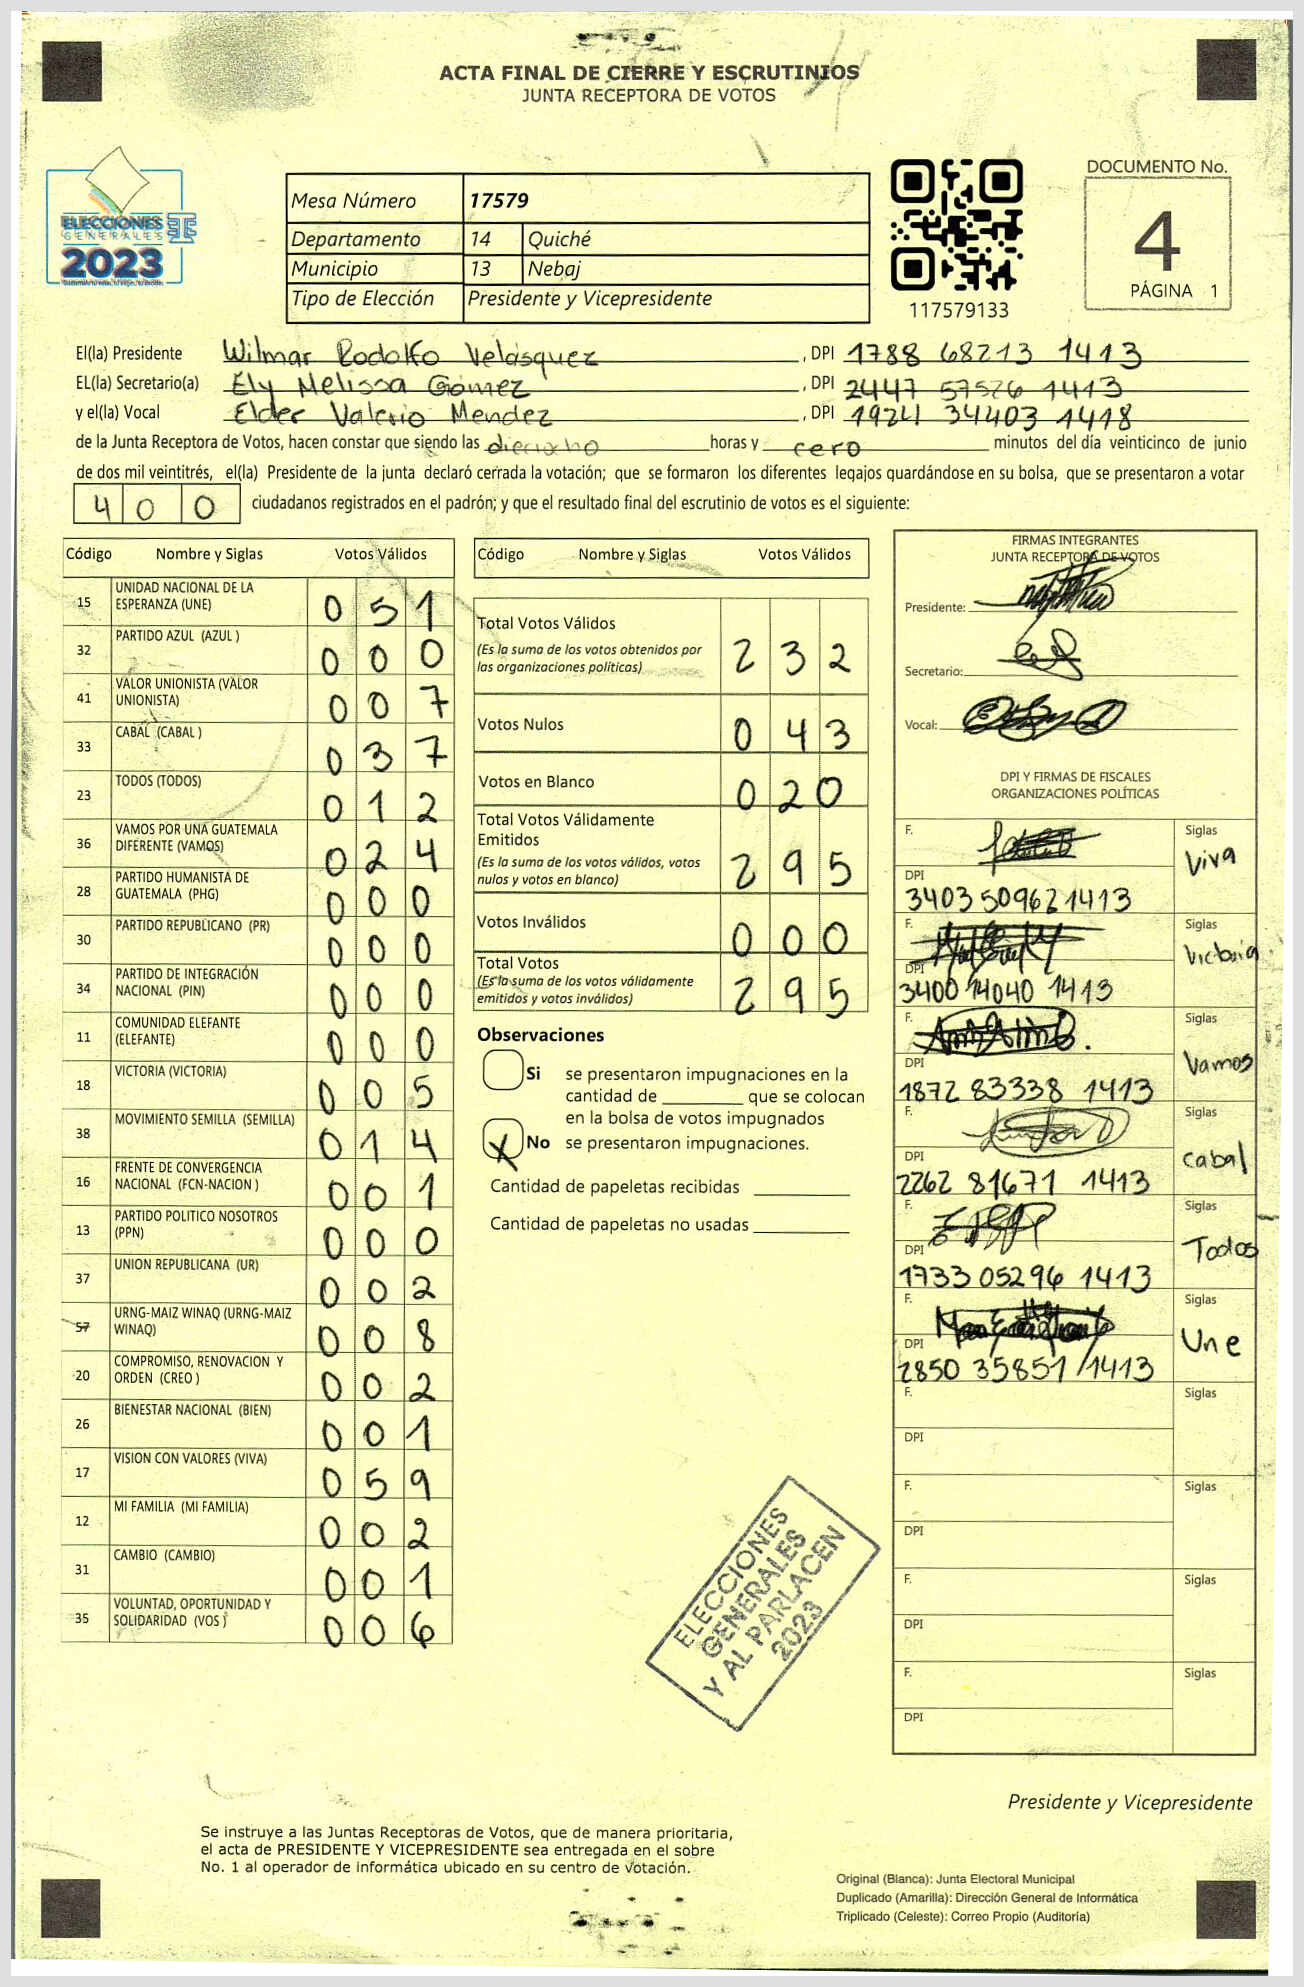 ACTA FINAL DE CIERRE Y ESCRUTINIOS
JUNTA RECEPTORA DE VOTOS
ELECCIONES
GENERALES
2023
Mesa Número 17579
Departamento 14 Quiché
Municipio 13 Nebaj
Tipo de Elección Presidente y Vicepresidente
117579133
DOCUMENTO No.
4
PÁGINA 1
El(la) Presidente Wilmar Rodolfo Velásquez, DPI 1788 68213 1413
EL(la) Secretario(a) Ely Melissa Gómez, DPI 2447 57526 1413
y el(la) Vocal Elder Valerio Mendez, DPI 1924 34403 1418
de la Junta Receptora de Votos, hacen constar que siendo las dieciocho horas y cero minutos del día veinticinco de junio
de dos mil veintitrés, el(la) Presidente de la junta declaró cerrada la votación; que se formaron los diferentes legajos guardándose en su bolsa, que se presentaron a votar
400 ciudadanos registrados en el padrón; y que el resultado final del escrutinio de votos es el siguiente:
Código Nombre y Siglas Votos Válidos
15 UNIDAD NACIONAL DE LA ESPERANZA (UNE) 051
32 PARTIDO AZUL (AZUL ) 000
41 VALOR UNIONISTA (VALOR UNIONISTA) 007
33 CABAL (CABAL ) 037
23 TODOS (TODOS) 012
36 VAMOS POR UNA GUATEMALA DIFERENTE (VAMOS) 024
28 PARTIDO HUMANISTA DE GUATEMALA (PHG) 000
30 PARTIDO REPUBLICANO (PR) 000
34 PARTIDO DE INTEGRACIÓN NACIONAL (PIN) 000
11 COMUNIDAD ELEFANTE (ELEFANTE) 000
18 VICTORIA (VICTORIA) 005
38 MOVIMIENTO SEMILLA (SEMILLA) 014
16 FRENTE DE CONVERGENCIA NACIONAL (FCN-NACION ) 001
13 PARTIDO POLITICO NOSOTROS (PPN) 000
37 UNION REPUBLICANA (UR) 002
57 URNG-MAIZ WINAQ (URNG-MAIZ WINAQ) 008
20 COMPROMISO, RENOVACION Y ORDEN (CREO ) 002
26 BIENESTAR NACIONAL (BIEN) 001
17 VISION CON VALORES (VIVA) 059
12 MI FAMILIA (MI FAMILIA) 002
31 CAMBIO (CAMBIO) 001
35 VOLUNTAD, OPORTUNIDAD Y SOLIDARIDAD (VOS ) 006
Código Nombre y Siglas Votos Válidos
Total Votos Válidos 232
(Es la suma de los votos obtenidos por
las organizaciones políticas)
Votos Nulos 043
Votos en Blanco 020
Total Votos Válidamente
Emitidos 295
(Es la suma de los votos válidos, votos
nulos y votos en blanco)
Votos Inválidos 000
Total Votos 295
(Es la suma de los votos válidamente
emitidos y votos inválidos)
Observaciones
Si se presentaron impugnaciones en la
cantidad de ________ que se colocan
en la bolsa de votos impugnados
X No se presentaron impugnaciones.
Cantidad de papeletas recibidas
Cantidad de papeletas no usadas
ELECCIONES
GENERALES
Y AL PARLACEN
2023
FIRMAS INTEGRANTES
JUNTA RECEPTORA DE VOTOS
Presidente:
Secretario:
Vocal:
DPI Y FIRMAS DE FISCALES
ORGANIZACIONES POLÍTICAS
F. Siglas Viva
DPI 3403 50962 1413
F. Siglas Victoria
DPI 3400 14040 1413
F. Siglas Vamos
DPI 1872 83338 1413
F. Siglas cabal
DPI 2262 81671 1413
F. Siglas Todos
DPI 1733 05296 1413
F. Siglas Une
DPI 2850 35851 1413
F. Siglas
DPI
F. Siglas
DPI
F. Siglas
DPI
F. Siglas
DPI
Presidente y Vicepresidente
Se instruye a las Juntas Receptoras de Votos, que de manera prioritaria,
el acta de PRESIDENTE Y VICEPRESIDENTE sea entregada en el sobre
No. 1 al operador de informática ubicado en su centro de votación.
Original (Blanca): Junta Electoral Municipal
Duplicado (Amarilla): Dirección General de Informática
Triplicado (Celeste): Correo Propio (Auditoría)